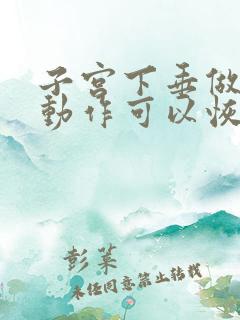 子宫下垂做
動作可以恢
彭某
未经同意禁止转载